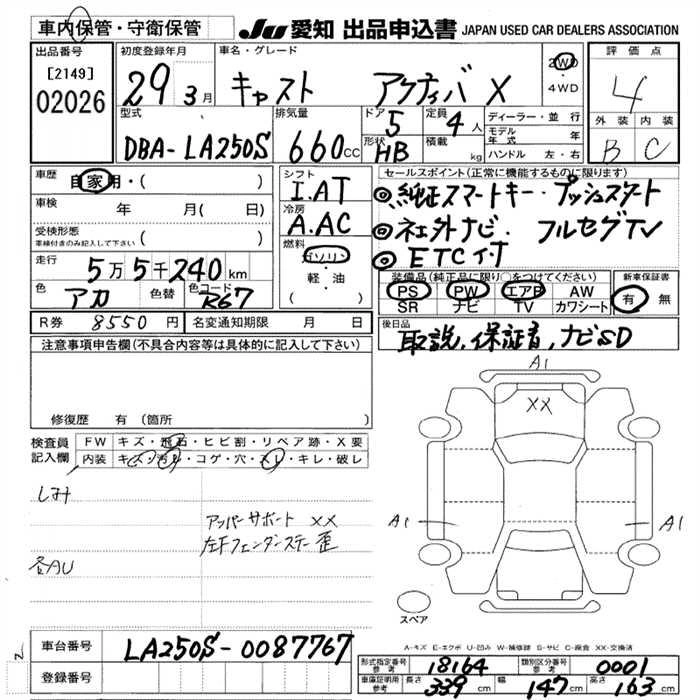 車内保管・守衛保管
JU 愛知 出品申込書 JAPAN USED CAR DEALERS ASSOCIATION
出品番号
[2149]
02026
初度登録年月
29 3月
車名・グレード
キャスト アクティバ X
2WD
・
4WD
評価点
4
外装 内装
B C
型式
DBA-LA250S
排気量
660cc
ドア
5
形状
HB
定員
4人
積載
kg
ディーラー・並行
モデル年式 年
ハンドル 左・右
車歴
自家用・( )
車検
年 月( 日)
受検形態
車検付きのみ記入して下さい ( )
走行
5万5千240km
色
アカ
色替
色コード
R67
シフト
I.AT
冷房
A.AC
燃料
ガソリン
・
軽・油
( )
セールスポイント(正常に機能するものに限ります)
◎純正スマートキー・プッシュスタート
◎社外ナビ・フルセグTV
◎ETC付
装備品(純正品に限り○をつけてください)
PS PW エアB AW
SR ナビ TV カワシート
新車保証書
有 無
R券 8550円
名変通知期限 月 日
後日品
取説、保証書、ナビSD
注意事項申告欄(不具合内容等は具体的に記入して下さい)
修復歴 有(箇所
検査員記入欄
FW キズ・飛石・ヒビ割・リペア跡・X要
内装 キズ・汚レ・コゲ・穴・スレ・キレ・破レ
しみ
アッパーサポート XX
左Fフェンダステー歪
各AU
A1
XX
A1
A1
スペア
A-キズ E-エクボ U-凹み W-補修跡 S-サビ C-腐食 XX-交換済
車台番号
LA250S-0087767
登録番号
型式指定番号
参考
18164
類別区分番号
参考
0001
車庫証明用
参考
長さ 339cm 幅 147cm 高さ 163cm